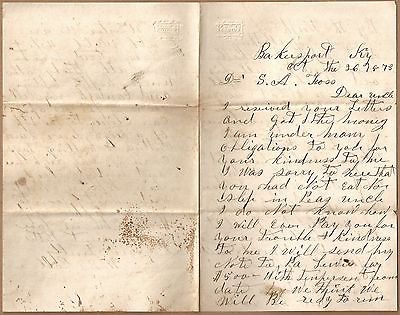 Bakersport Ky
Oct the 26 1873
Dr S. A. Foss
Dear uncle
I received your Letters
and Got they money
I am under many
obligations to you for
your kindness to me
I was sorry to here that
you had Not Eat Nor
Slep in Peas uncle
I do Not Know how
I will Ever Pay you for
your Trouble & Kindness
to me I will send my
Note to
$500 With Interest from
date We think We
Will Be redy to run